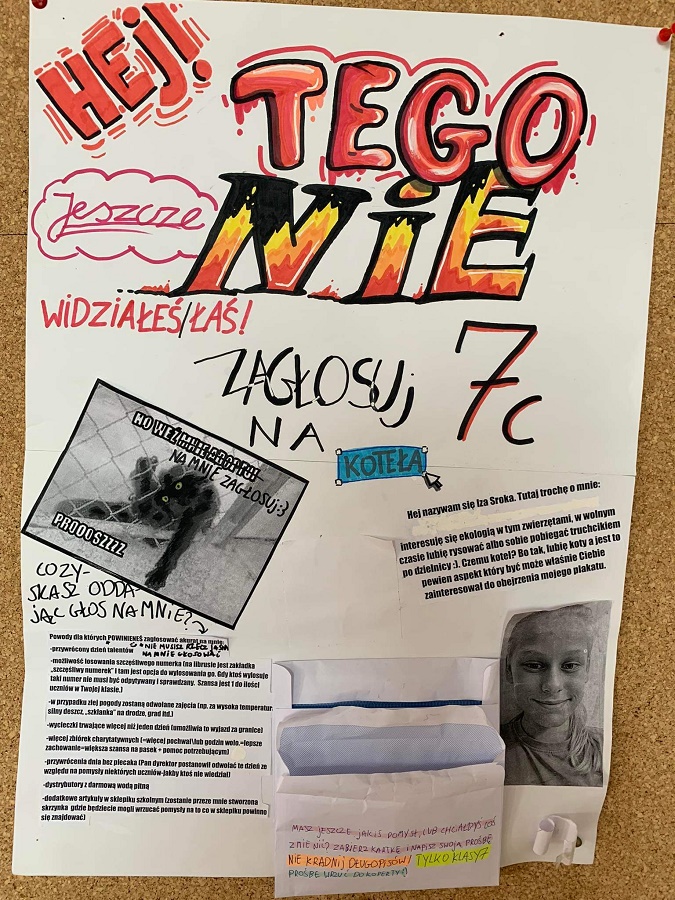 HEJ!
TEGO
NiE
Jeszcze
WiDZiAŁEŚ/ŁAŚ!
ZAGŁOSUj
NA
7c
KOTEŁA
NO WEŹ
NA MNIE ZAGŁOSUJ:3
PROOOSZZZ
Hej nazywam się Iza Sroka. Tutaj trochę o mnie:
interesuję się ekologią w tym zwierzętami, w wolnym
czasie lubię rysować albo sobie pobiegać truchcikiem
po dzielnicy :). Czemu kotel? Bo tak, lubię koty a jest to
pewien aspekt który być może właśnie Ciebie
zainteresował do obejrzenia mojego plakatu.
CO ZY-
SKASZ ODDA-
JĄC GŁOS NA MNIE?
Powody dla których POWINIENEŚ zagłosować akurat na mnie:
-przywrócony dzień talentów
NIE MUSISZ RZECZ JASNA
NA MNIE GŁOSOWAĆ
-możliwość losowania szczęśliwego numerka (na librusie jest zakładka
„szczęśliwy numerek" i tam jest opcja do wylosowania go. Gdy ktoś wylosuje
taki numer nie musi być odpytywany i sprawdzany. Szansa jest 1 do ilości
uczniów w Twojej klasie.)
-w przypadku złej pogody zostaną odwołane zajęcia (np. za wysoka temperatur
silny deszcz, „szklanka" na drodze, grad itd.)
-wycieczki trwające więcej niż jeden dzień (umożliwia to wyjazd za granice)
-więcej zbiórek charytatywnych (=więcej pochwał\lub godzin wolo.=lepsze
zachowanie=większa szansa na pasek + pomoc potrzebującym)
-przywrócenia dnia bez plecaka (Pan dyrektor postanowił odwołać te dzień ze
względu na pomysły niektórych uczniów-jakby ktoś nie wiedział)
-dystrybutory z darmową wodą pitną
-dodatkowe artykuły w sklepiku szkolnym (zostanie przeze mnie stworzona
skrzynka gdzie będziecie mogli wrzucać pomysły na to co w sklepiku powinno
się znajdować)
MASZ JESZCZE JAKIŚ POMYSŁ, LUB CHCIAŁBYŚ COŚ
ZMIENIĆ? ZABIERZ KARTKĘ I NAPISZ SWOJĄ PROŚBĘ
NIE KRADNIJ DŁUGOPISÓW! TYLKO KLASY 7
PROŚBĘ WRZUĆ DO KOPERTY:)